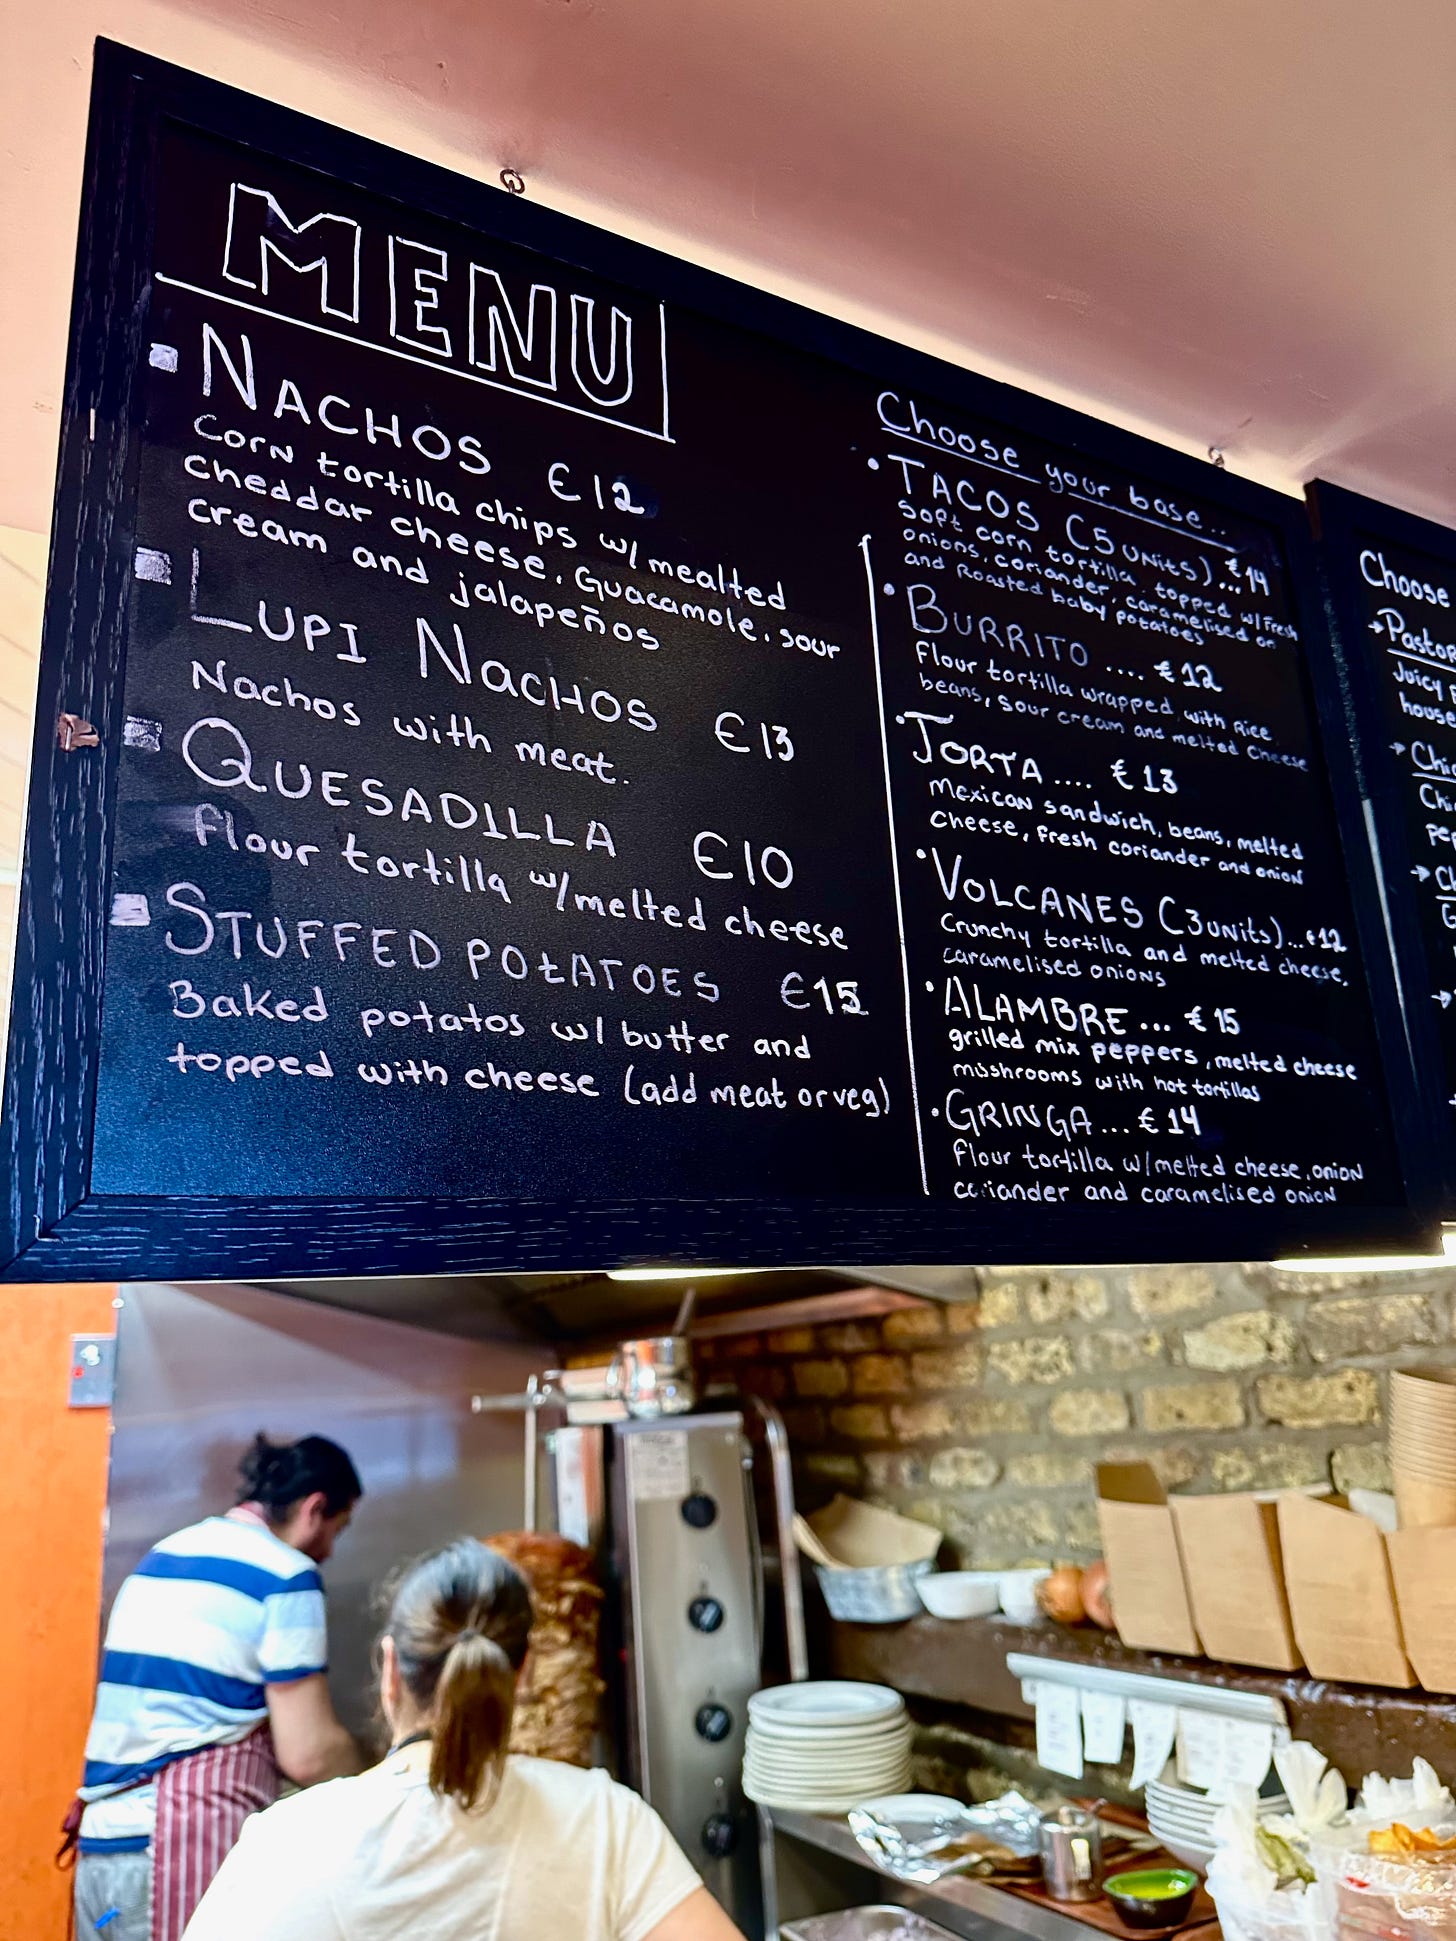 MENU
NACHOS €12
Corn tortilla chips w/mealted
cheddar cheese, Guacamole, sour
cream and jalapeños
LUPI NACHOS €13
Nachos with meat.
QUESADILLA €10
flour tortilla w/melted cheese
STUFFED POTATOES €15
Baked potatos w/ butter and
topped with cheese (add meat or veg)
Choose your base...
• TACOS (5 units)... €14
soft corn tortilla, topped w/ fresh
onions, coriander, caramelised on
and Roasted baby potatoes
• BURRITO .... €12
flour tortilla wrapped with Rice,
beans, sour cream and melted cheese
• TORTA .... €13
Mexican sandwich, beans, melted
cheese, fresh coriander and onion
• VOLCANES (3 units)...€12
Crunchy tortilla and melted cheese,
caramelised onions
• ALAMBRE ... €15
grilled mix peppers, melted cheese
mushrooms with hot tortillas
• GRINGA ... €14
flour tortilla w/melted cheese, onion
coriander and caramelised onion
Choose
→ Pastor
Juicy
house